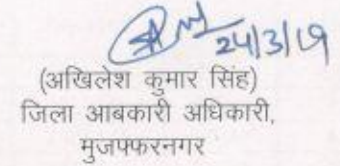 24/3/19
(अखिलेश कुमार सिंह)
जिला आबकारी अधिकारी,
मुजफ्फरनगर